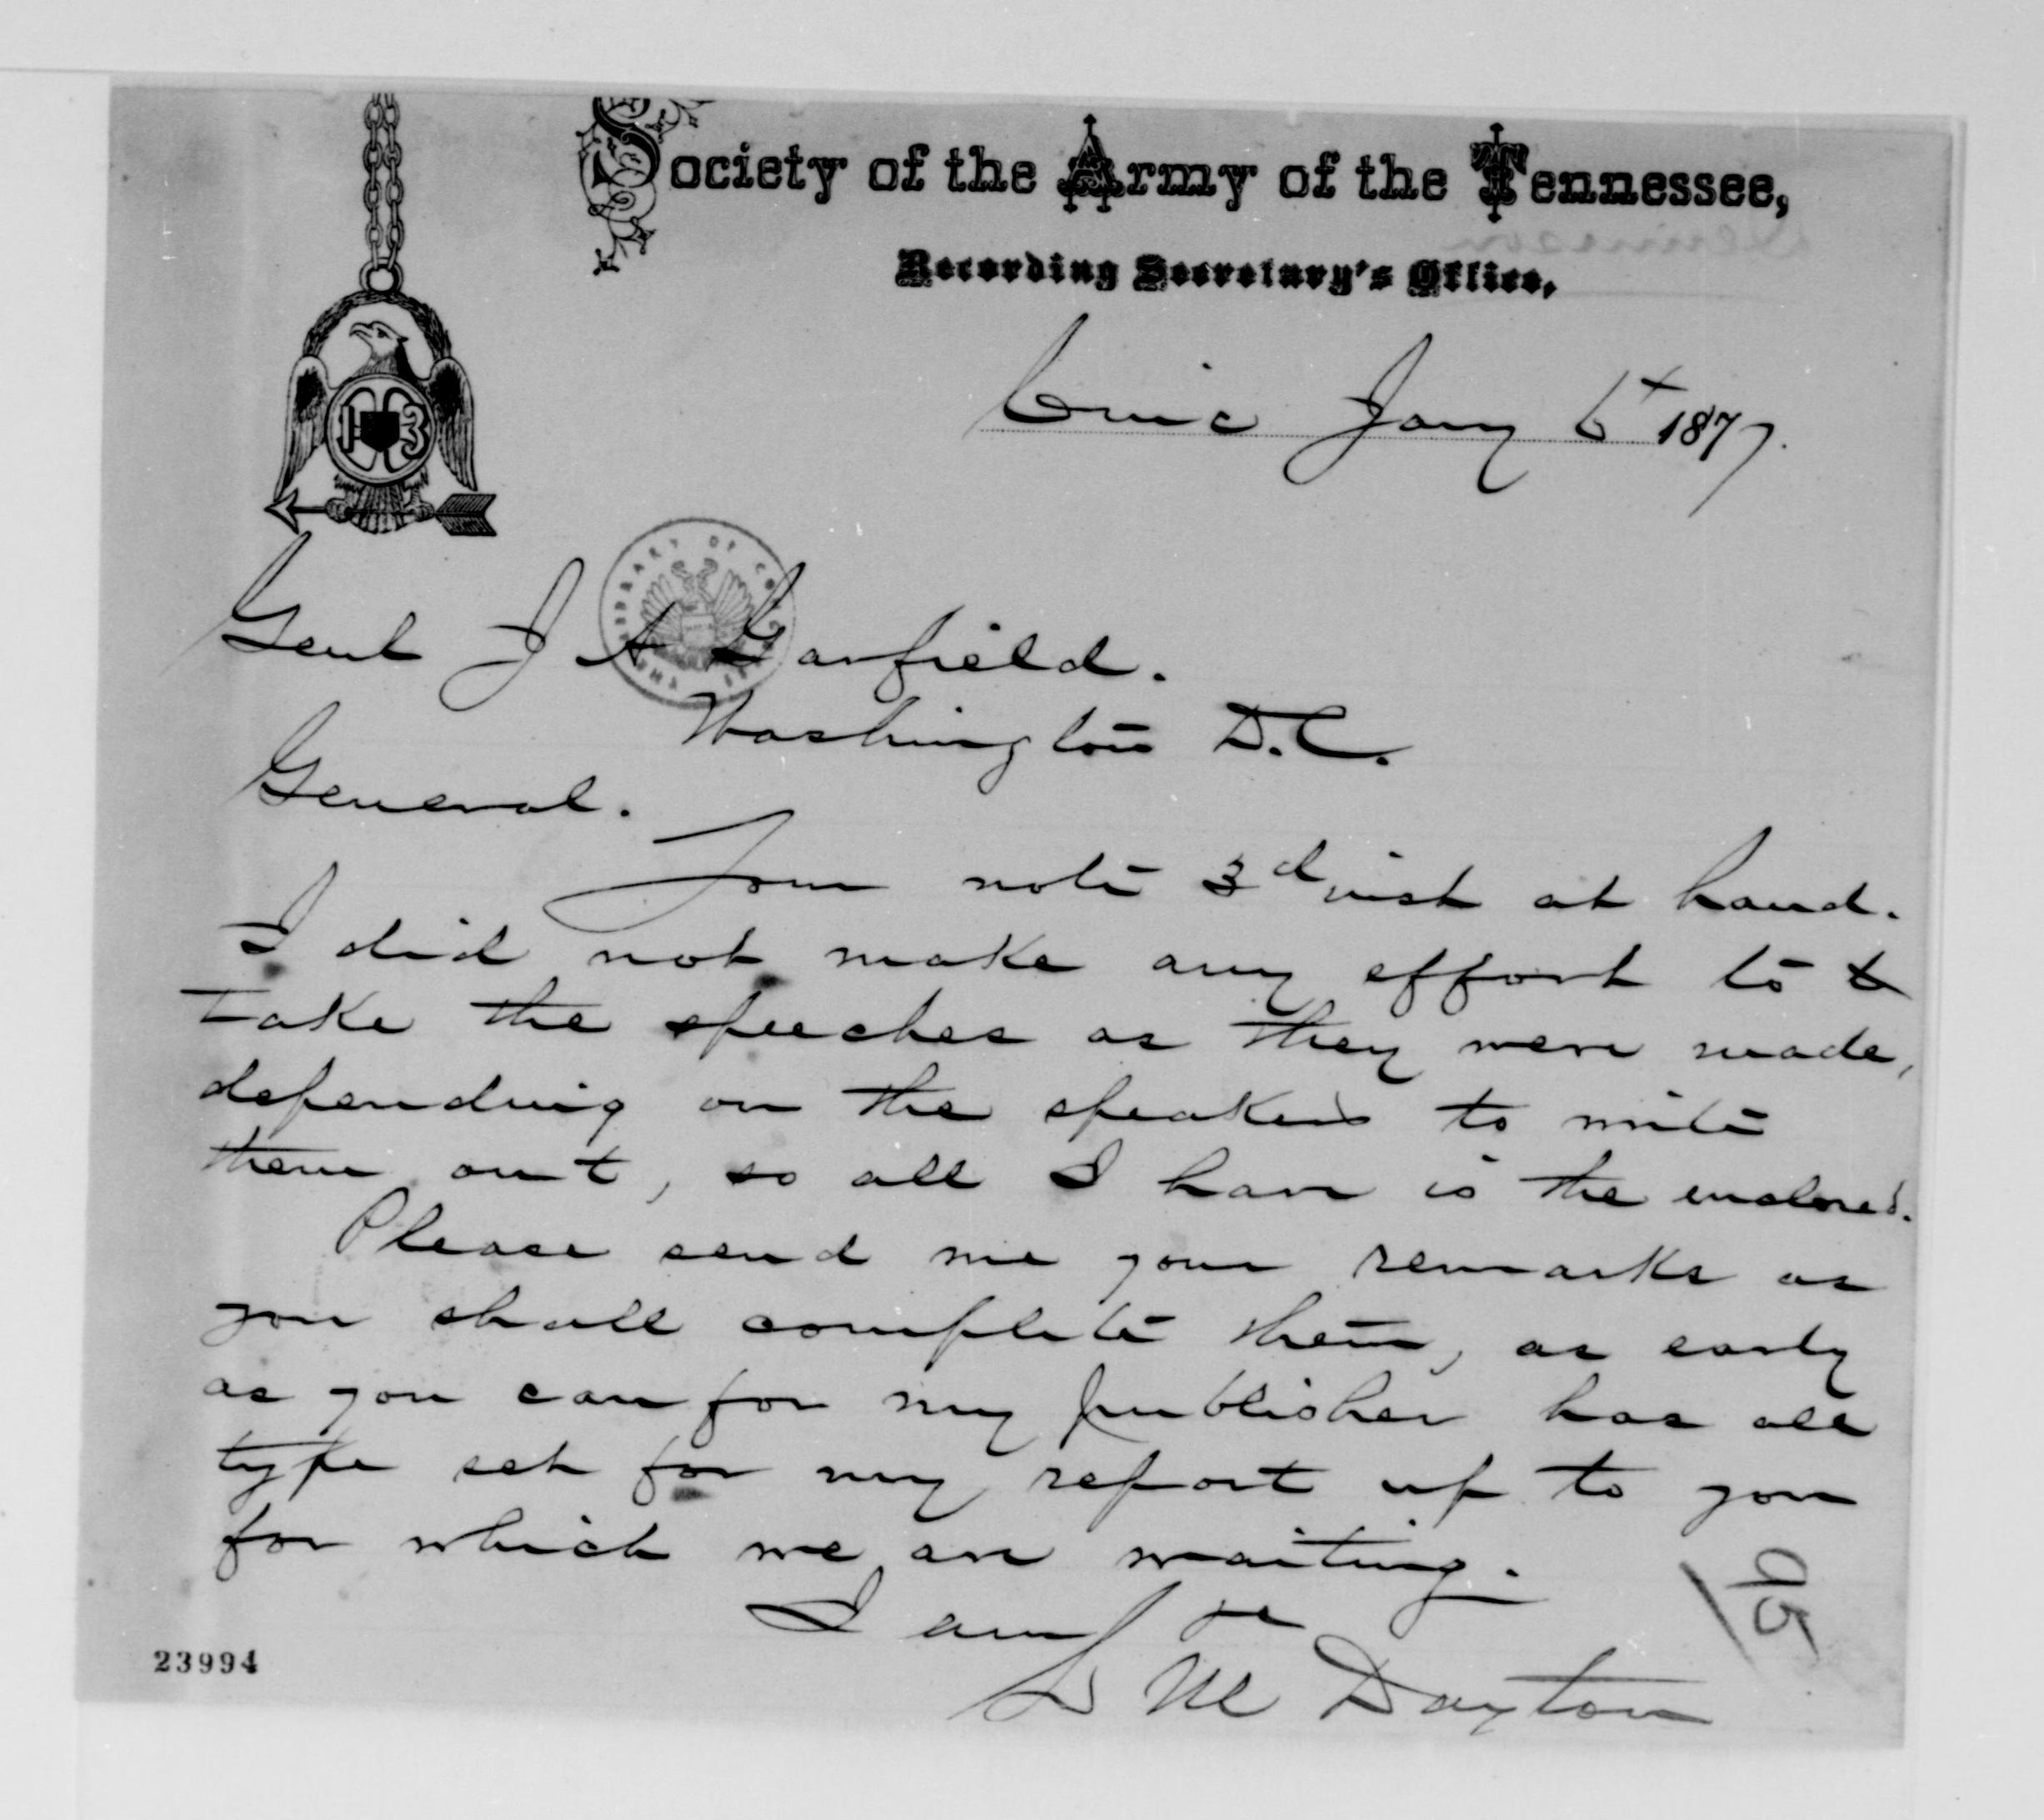 Society of the Army of the Tennessee,
Recording Secretary's Office,
Cinc Jany 6t 1877.
1 3
THE LIBRARY OF CONGRESS
Genl J A Garfield.
Washington D.C.
General.
Your note 3d inst at hand.
I did not make any effort to
take the speeches as they were made,
depending on the speakers to write
them out, so all I have is the enclosed.
Please send me your remarks as
you shall complete them, as early
as you can for my publisher has all
type set for my report up to you
for which we are waiting.
I am &c
L M Dayton
95
23994